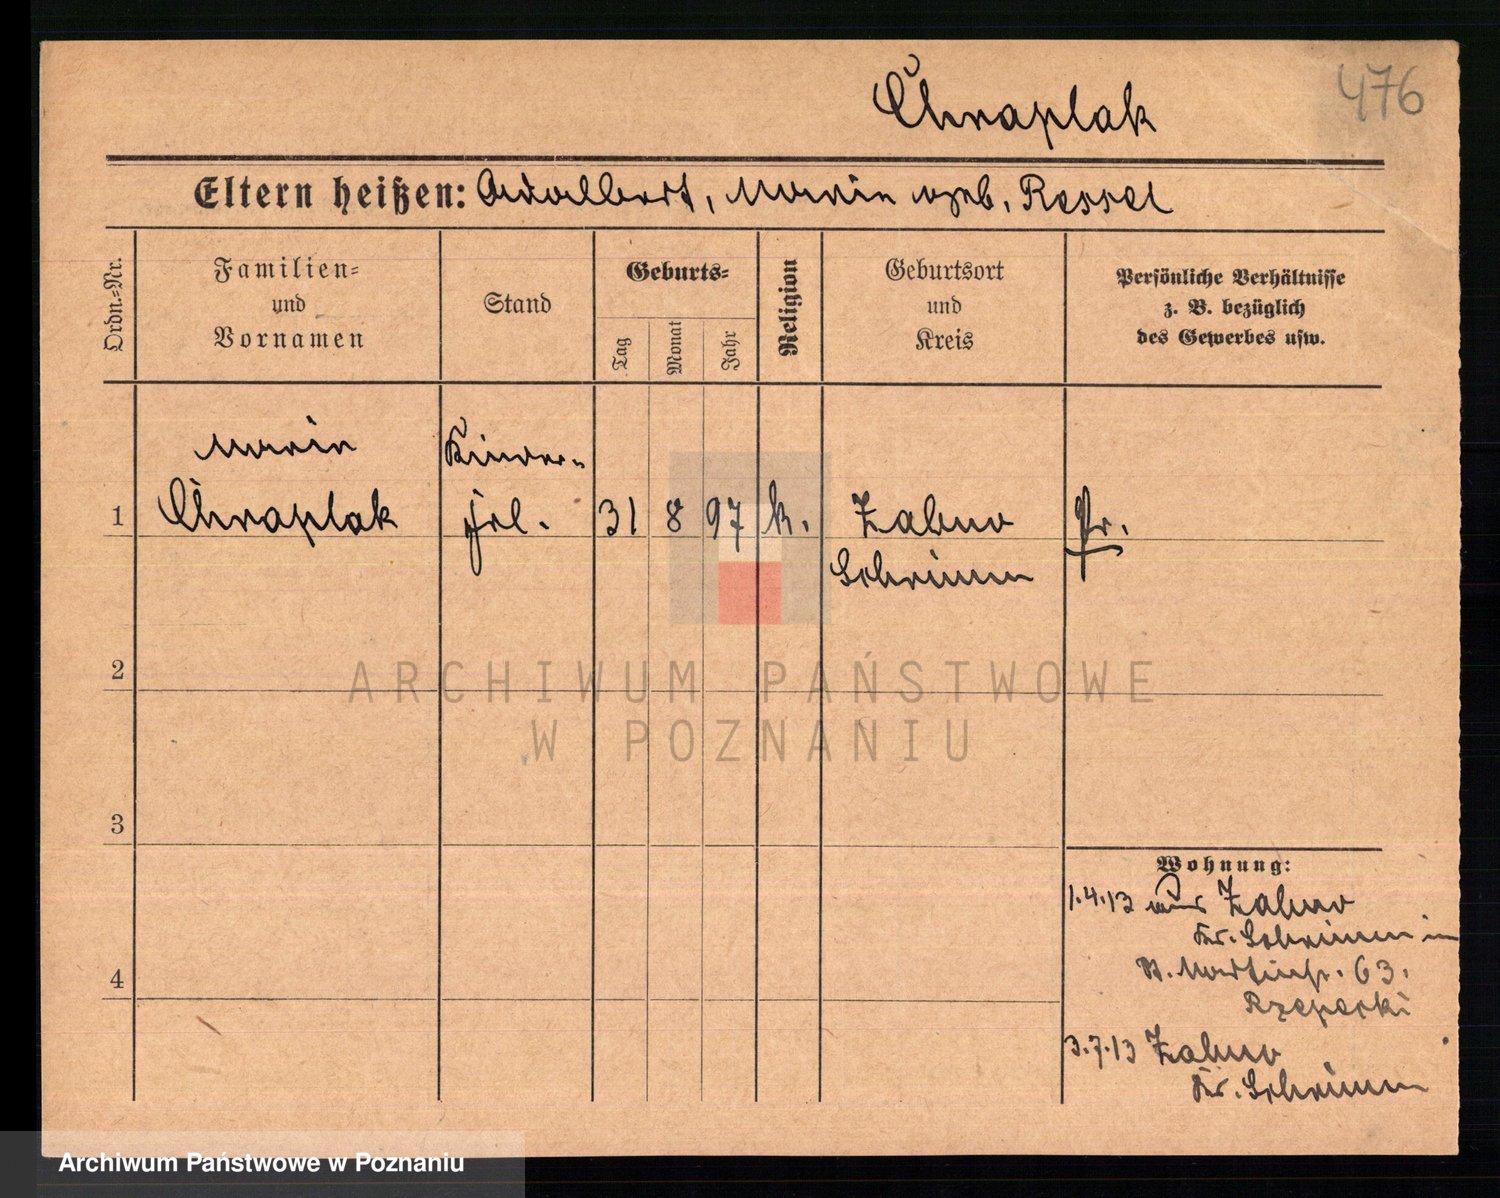 Chraplak
476
Eltern heißen: Adalbert, Marie geb. Ressel
Ordn.-Nr.
Familien-
und
Vornamen
Stand
Geburts-
Tag
Monat
Jahr
Religion
Geburtsort
und
Kreis
Persönliche Verhältnisse
z. B. bezüglich
des Gewerbes usw.
Marie Kinder-
1 Chraplak frl. 31 8 97 k. Zabno Pr.
Schrimm
2
ARCHIWUM PAŃSTWOWE
W POZNANIU
3
Wohnung:
1.4.13 aus Zabno
Kr. Schrimm in
St. Martinstr. 63.
4
Rzepecki
3.7.13 Zabno
Kr. Schrimm
Archiwum Państwowe w Poznaniu